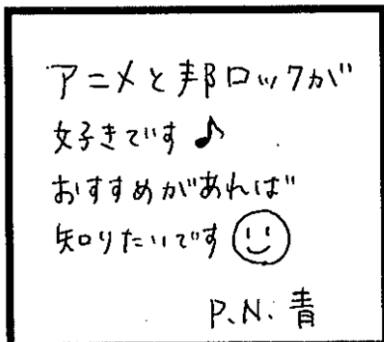 アニメと邦ロックが
好きです♪
おすすめがあれば
知りたいです
P.N. 青